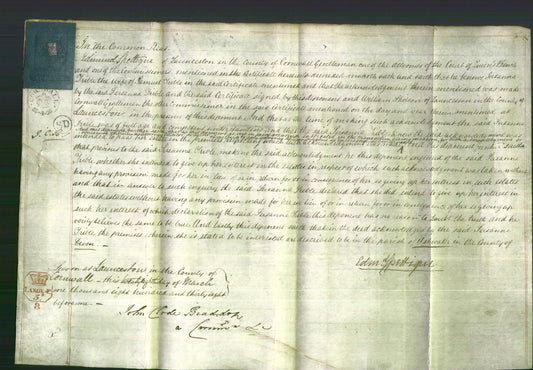 In the Common Pleas
Edmund Spettigue of Launceston in the County of Cornwall Gentleman one of the attornies of the Court of Queen's Bench
and one of the Commissioners mentioned in the Certificate hereunto annexed maketh oath and saith that he knows Susanna
Treble the wife of Samuel Treble in the said Certificate mentioned and that the acknowledgment therein mentioned was made
by the said Susanna Treble and the said Certificate signed by this deponent and William Pearson of Launceston in the County of
Cornwall Gentleman the other Commissioner in the said Certificate named on the day and year therein mentioned at
Launceston in the presence of this deponent And that at the time of making such acknowledgment the said Susanna
Treble was of full age and
that previous to the said Susanna Treble making the said acknowledgment he this deponent enquired of the said Susanna
Treble whether she intended to give up her interest in the estates in respect of which such acknowledgment was taken without
having any provision made for her in lieu of or in return for or in consequence of her so giving up her interest in such estates
and that in answer to such enquiry the said Susanna Treble declared that she did intend to give up her interest in
the said estates without having any provision made for her in lieu of or in return for or in consequence of her so giving up
such her interest of which declaration of the said Susanna Treble this deponent has no reason to doubt the truth and he
verily believes the same to be true And lastly this deponent saith that in the deed acknowledged by the said Susanna
Treble the premises wherein she is stated to be interested are described to be in the parish of in the County of
Devon —
Edm Spettigue
Sworn at Launceston in the County of
Cornwall this day of March
one thousand eight hundred and thirty eight
before me —
John Clode Braddon
a Commr &c